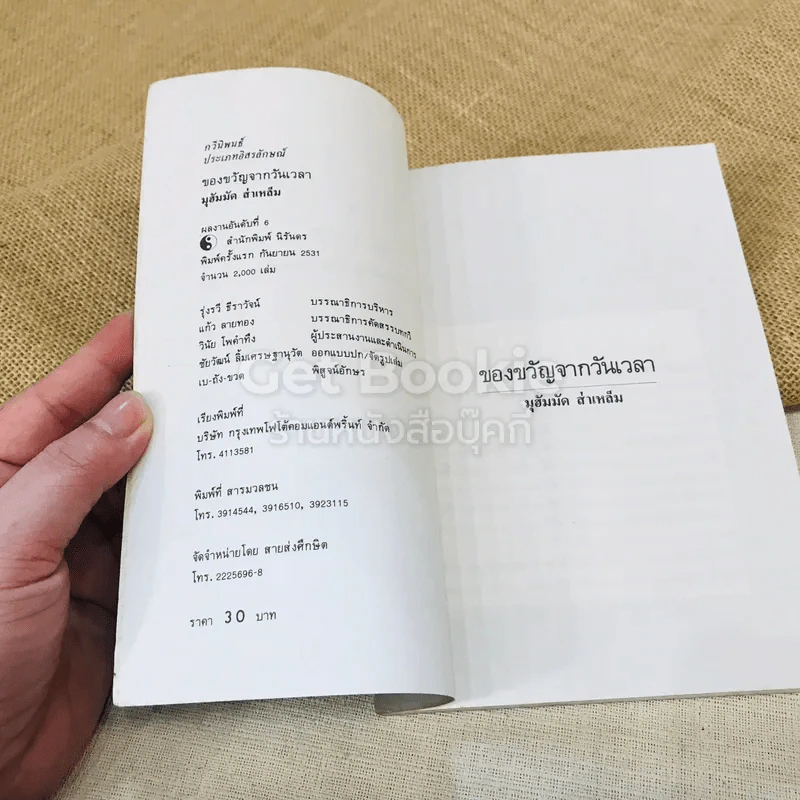 กวีนิพนธ์
ประเภทอิสรลักษณ์
ของขวัญจากวันเวลา
มุฮัมมัด ส่าเหล็ม
ผลงานอันดับที่ 6
สำนักพิมพ์ นิรันดร
พิมพ์ครั้งแรก กันยายน 2531
จำนวน 2,000 เล่ม
รุ่งรวี ธีราวัจน์ บรรณาธิการบริหาร
แก้ว ลายทอง บรรณาธิการคัดสรรบทกวี
วินัย โพคำทึง ผู้ประสานงานและดำเนินการ
ชัยวัฒน์ ลิ้มเศรษฐานุวัต ออกแบบปก/จัดรูปเล่ม
เบ-ถัง-ขวด พิสูจน์อักษร
เรียงพิมพ์ที่
บริษัท กรุงเทพโฟโต้คอมแอนด์พริ้นท์ จำกัด
โทร. 4113581
พิมพ์ที่ สารมวลชน
โทร. 3914544, 3916510, 3923115
จัดจำหน่ายโดย สายส่งศึกษิต
โทร. 2225696-8
ราคา 30 บาท
ของขวัญจากวันเวลา
มุฮัมมัด ส่าเหล็ม
Get Bookie
ร้านหนังสือบุ๊คกี้